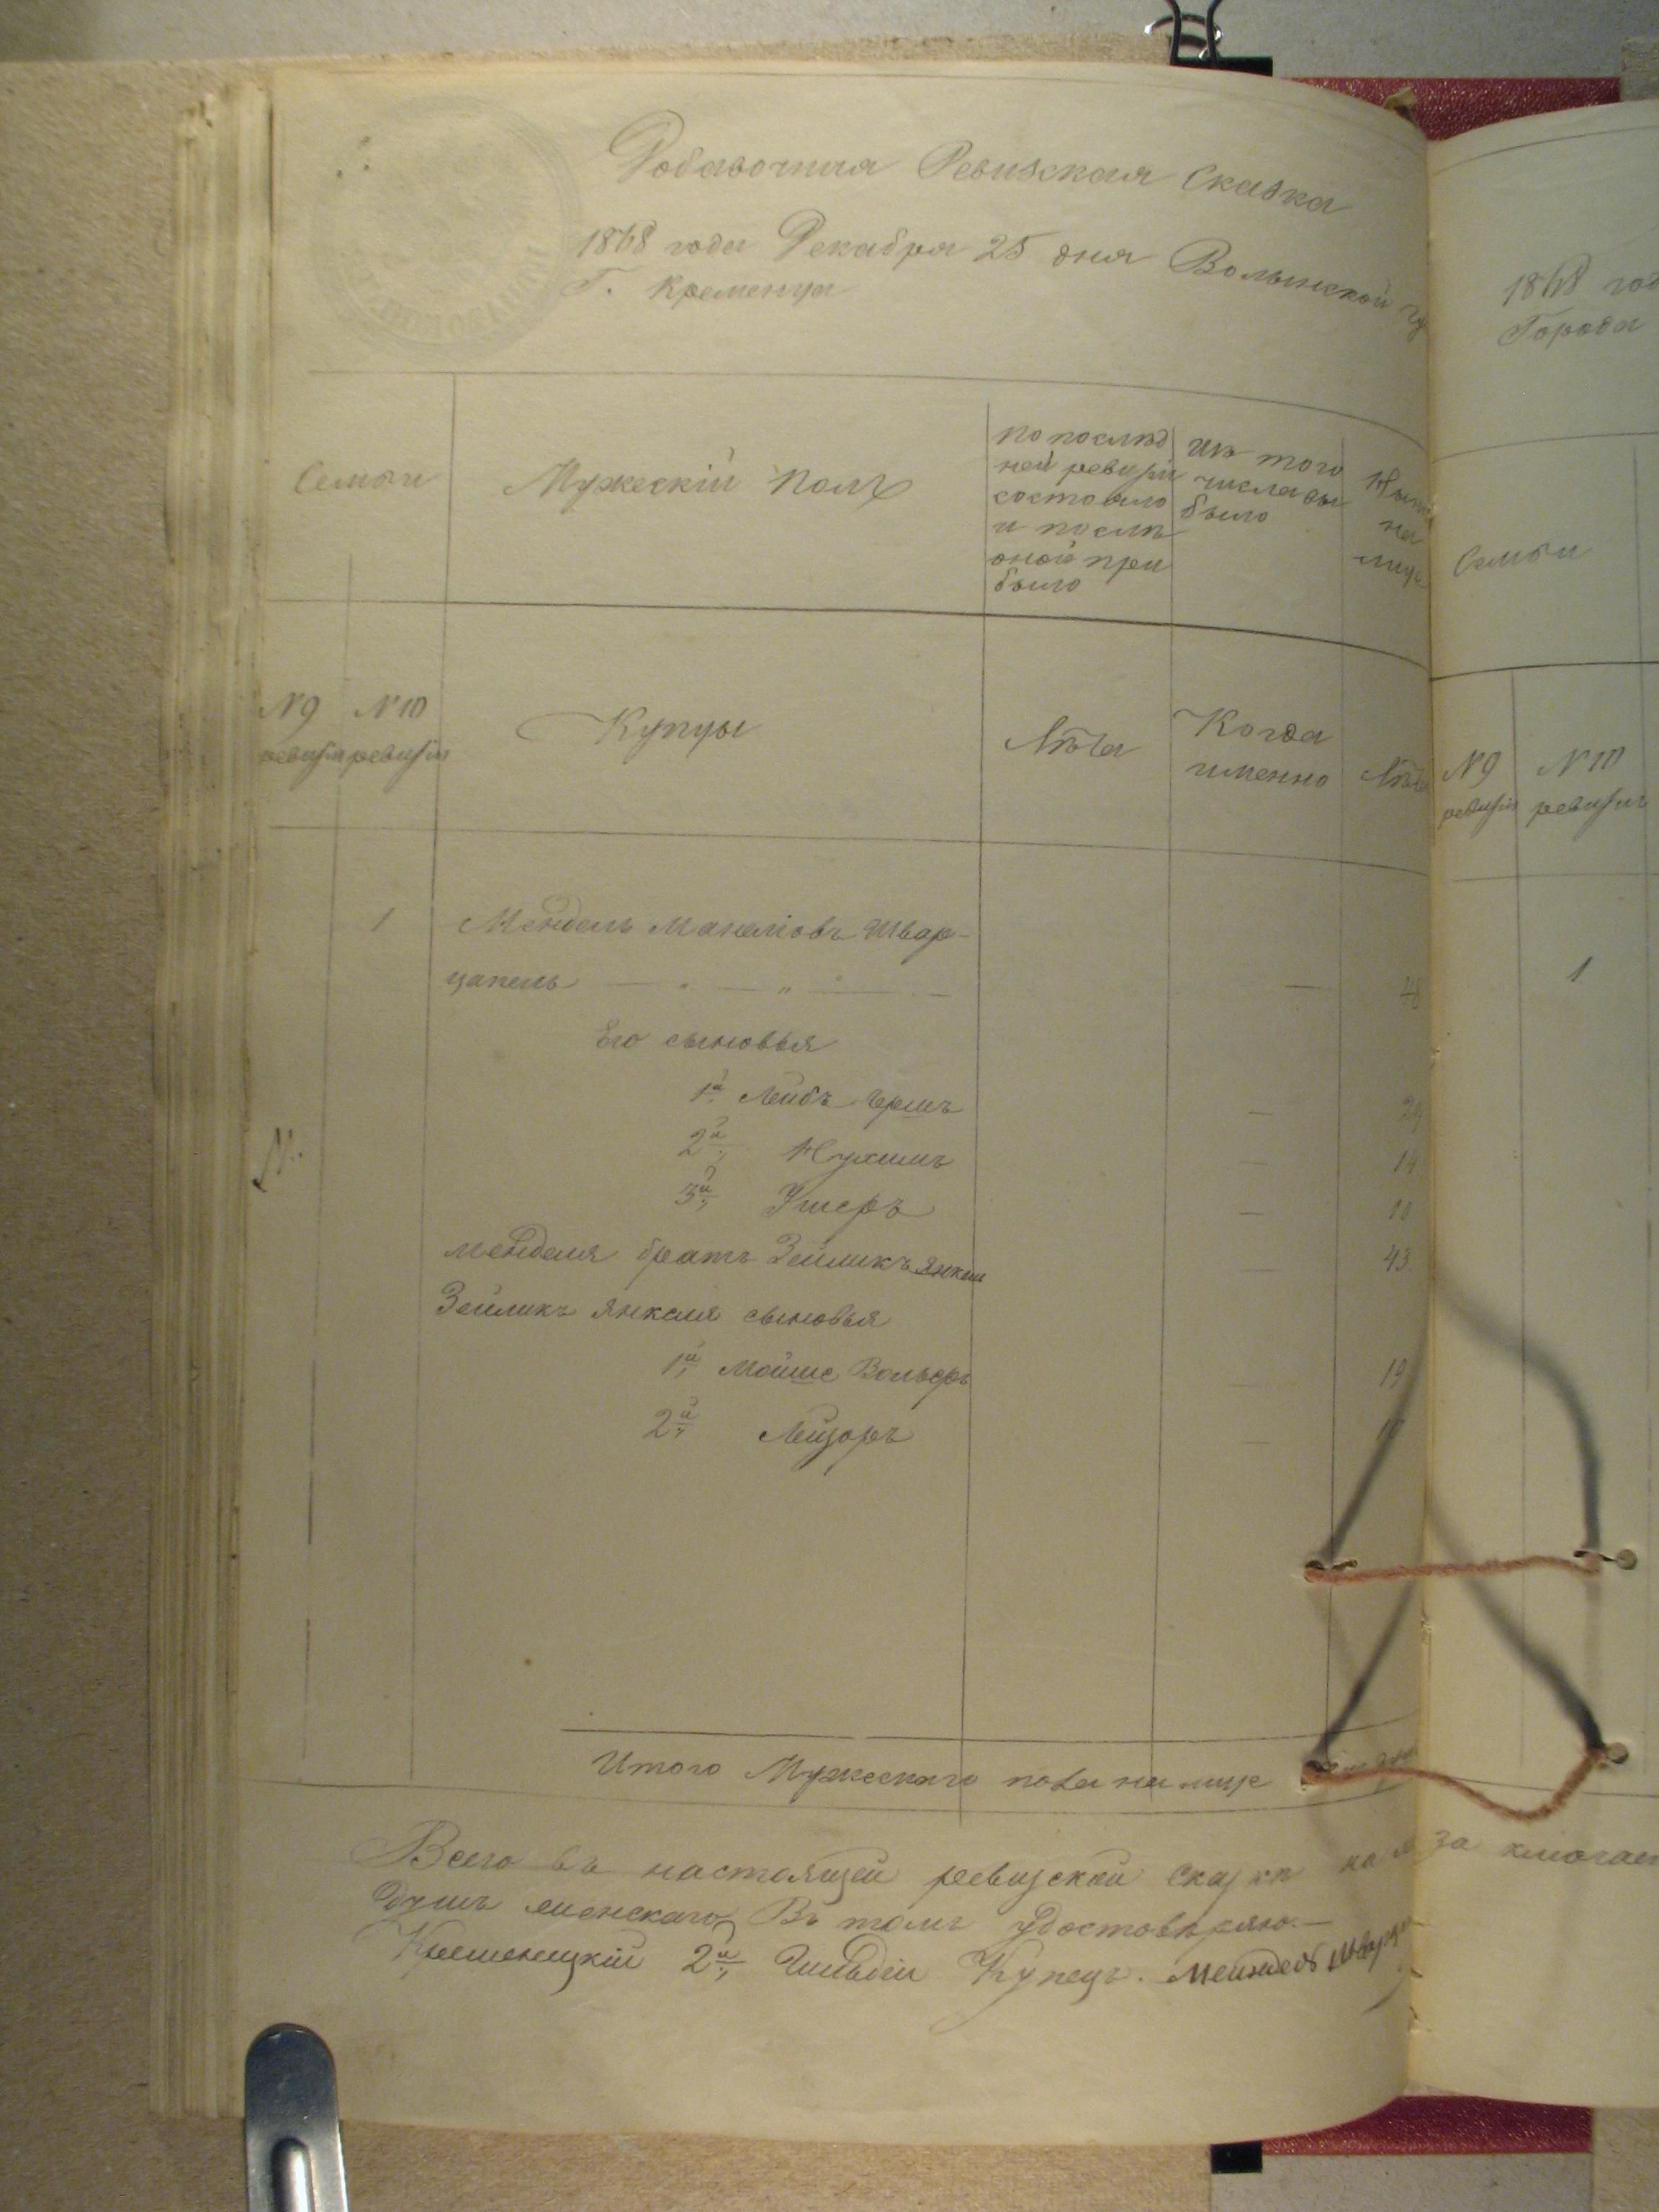 Добавочная Ревизская Сказка
1868 года Декабря 25 дня Волынской
Г. Кременца
Семьи
Мужескій полъ
По послѣд
ней ревизіи
состояло
и послѣ
оной при
было
Изъ того
числа вы
было
Нынѣ
на
лице
№ 9 ревизіи
№ 10 ревизіи
Купцы
Лѣта
Когда
именно
Лѣта
1 Мендель Манелiовъ Швар-
цапель — " — " — 48
Его сыновья
1й Лейбъ Гершъ —
2й Нухимъ — 14
3й Ушеръ — 10
Менделя братъ Зейликъ Янкель — 43.
Зейликъ Янкеля сыновья
1й Мойше Вольфъ 19
2й Лейзоръ —
Итого Мужескаго пола на лице
Всего въ настоящей ревизской сказкѣ
душъ женскаго, Въ томъ удостовѣряю.—
Кременецкій 2й Гильдіи Купецъ. Мендель
1868
Города
Семьи
№ 9 ревизіи
№ 10 ревизіи
1
за